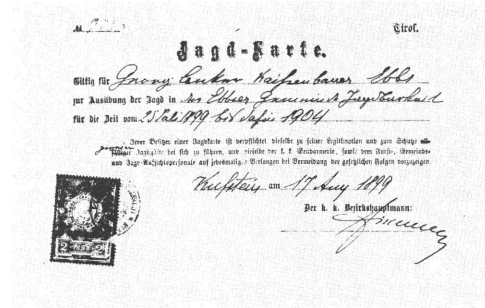 № Tirol.
Jagd-Karte.
Giltig für Georg Kaisenbauer Ebbs
zur Ausübung der Jagd in der Ebbser Gemeinde
für die Zeit vom 25 Juli 1899 bis dahin 1904
Jeder Besitzer einer Jagdkarte ist verpflichtet dieselbe zu seiner Legitimation und zum Schutze
Jagdgäste bei sich zu führen, und dieselbe der k. k. Gendarmerie, sowie dem Forst-, Gemeinde-
und Jagd-Aufsichtspersonale auf jedesmaliges Verlangen bei Vermeidung der gesetzlichen Folgen vorzuzeigen.
Kufstein am 17 Aug 1899
Der k. k. Bezirkshauptmann:
2